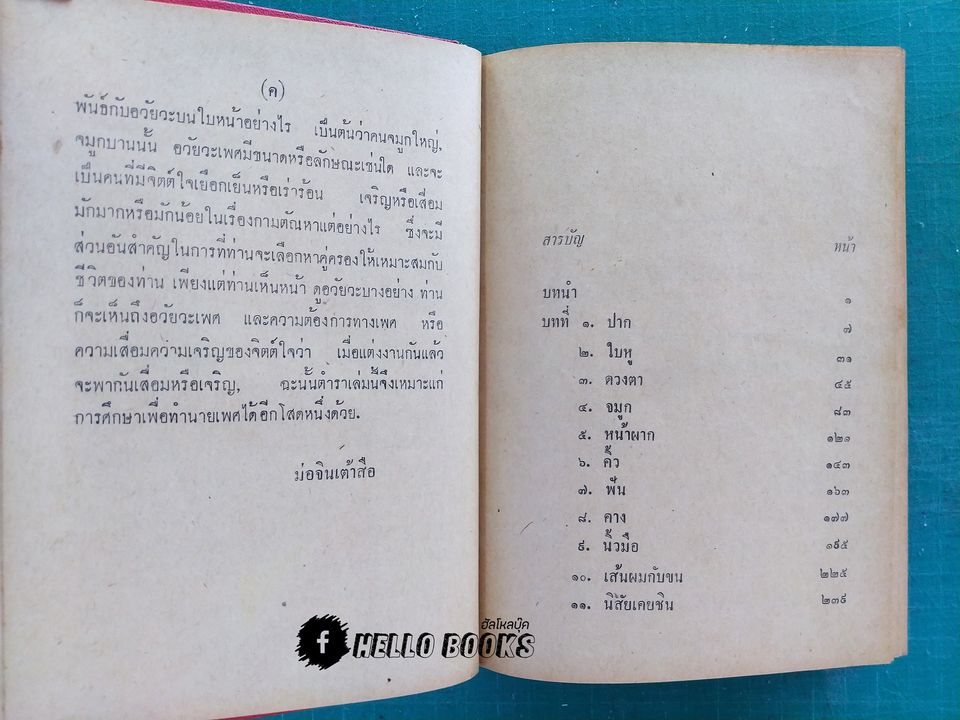 (ค)
พันธ์กับอวัยวะบนใบหน้าอย่างไร เป็นต้นว่าคนจมูกใหญ่,
จมูกบานนั้น อวัยวะเพศมีขนาดหรือลักษณะเช่นใด และจะ
เป็นคนที่มีจิตต์ใจเยือกเย็นหรือเร่าร้อน เจริญหรือเสื่อม
มักมากหรือมักน้อยในเรื่องกามตัณหาแต่อย่างไร ซึ่งจะมี
ส่วนอันสำคัญในการที่ท่านจะเลือกหาคู่ครองให้เหมาะสมกับ
ชีวิตของท่าน เพียงแต่ท่านเห็นหน้า ดูอวัยวะบางอย่าง ท่าน
ก็จะเห็นถึงอวัยวะเพศ และความต้องการทางเพศ หรือ
ความเสื่อมความเจริญของจิตต์ใจว่า เมื่อแต่งงานกันแล้ว
จะพากันเสื่อมหรือเจริญ, ฉะนั้นตำราเล่มนี้จึงเหมาะแก่
การศึกษาเพื่อทำนายเพศได้อีกโสดหนึ่งด้วย.
ม่อจินเต้าสือ
สารบัญ หน้า
บทนำ ๑
บทที่ ๑. ปาก ๗
๒. ใบหู ๓๑
๓. ดวงตา ๔๕
๔. จมูก ๘๓
๕. หน้าผาก ๑๒๑
๖. คิ้ว ๑๔๓
๗. ฟัน ๑๖๓
๘. คาง ๑๗๗
๙. นิ้วมือ ๑๙๕
๑๐. เส้นผมกับขน ๒๒๕
๑๑. นิสัยเคยชิน ๒๓๙
ฮัลโหลบุ๊ค
f HELLO BOOKS